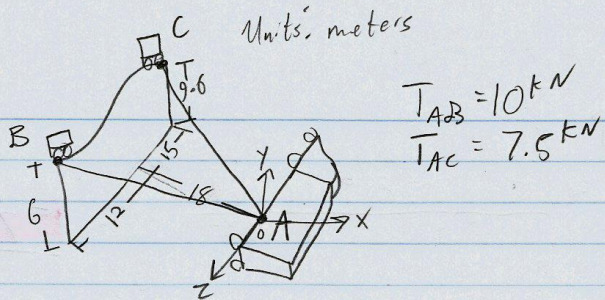 C
Units: meters
T
9.6
T_AB = 10 kN
T_AC = 7.5 kN
B
T
15
Y
6
18
12
A
X
o
Z